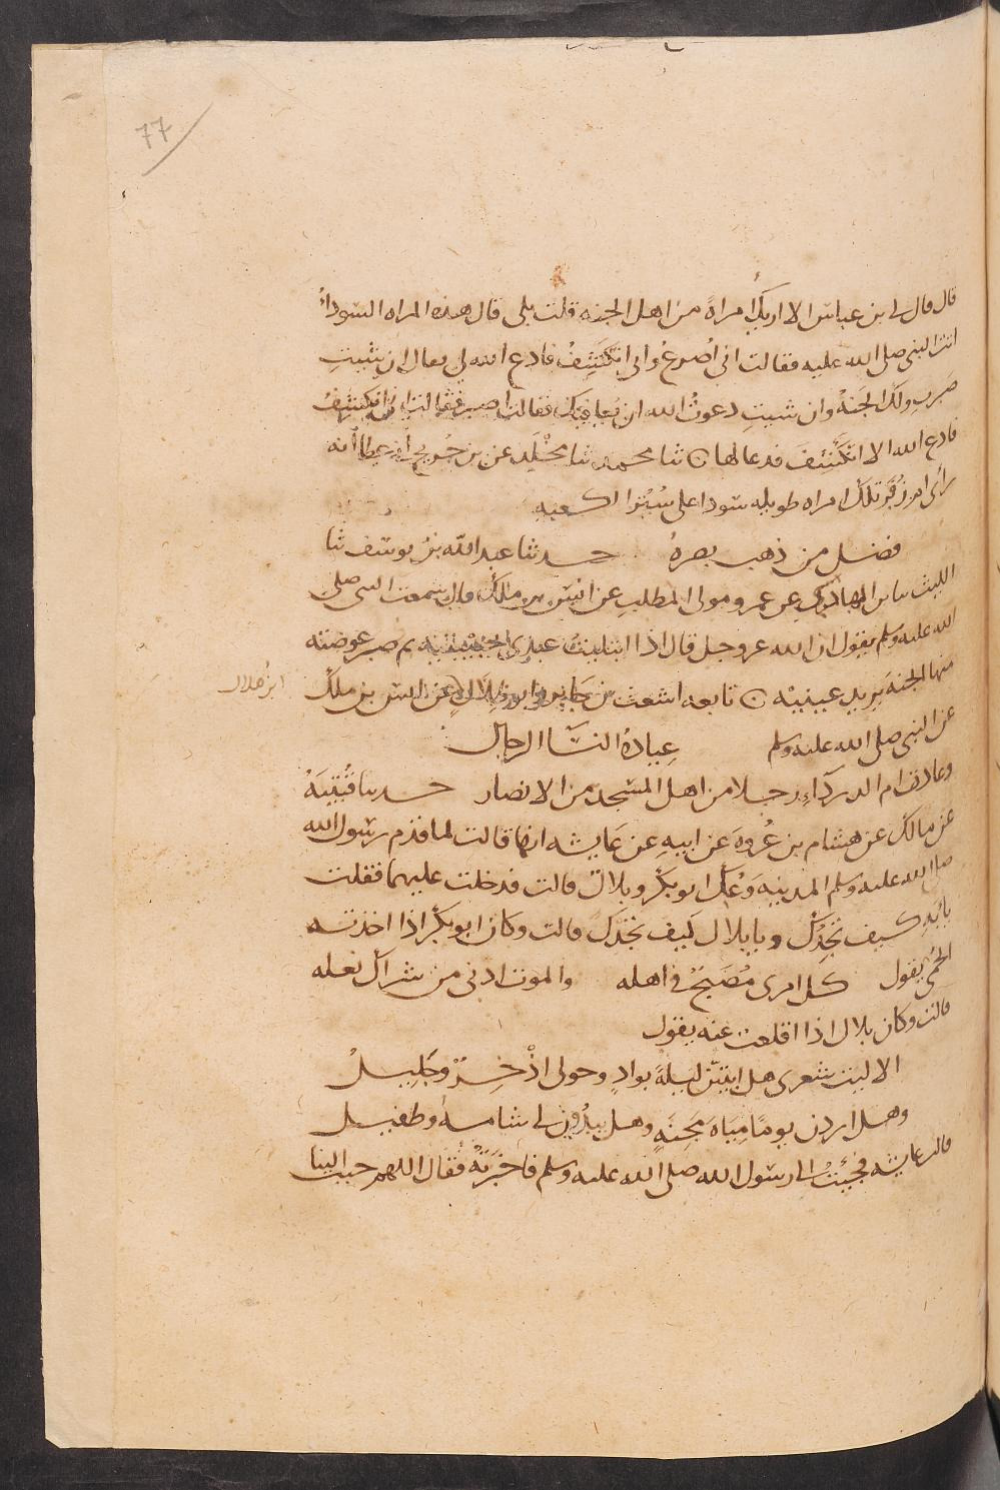 77
قال قال لى بن عباس الا اريك امراةً من اهل الجنه قلت بلى قال هذه المراه السوداءُ
اتت النبى صلى الله عليه فقالت انى اُصرعُ وانى اتكَشِفُ فادع الله لى فقال ان شيتِ
صبرتِ ولكِ الجنهُ وان شيتِ دعوتُ الله ان يُعافيَكِ فقالت اصبر فقالت انى اتكشفُ
فادع الله الا اتكَشفَ فدعا لها ثنا محمد ثنا مخلِد عن بن جُريجٍ اخبرنى عطا انه
راى ام زُفَر تلك امراه طويله سودا على سُتر الكعبه
فضل من ذهب بصرهُ حدثنا عبد الله بنُ يوسف ثنا
الليث ثنا بن الهاد عن عمرو مولى المطلبِ عن انس بن ملك قال سمعت النبى صلى
الله عليه وسلم يقول ان الله عز وجل قال اذا ابتليتُ عبدى بحبيبتيه ثم صبر عوضته
منها الجنه يريد عينيه تابعه اشعث بن جابر وابو ظلال عن انس بن ملك
ابن هلال
عن النبى صلى الله عليه وسلم عِيادةُ النسا الرجال
وعادت ام الدرداءِ رجلا من اهل المسجد من الانصار حدثنا قُتيبَةُ
عن مالك عن هشام بن عُروهَ عن ابيهِ عن عَايشه انها قالت لما قدم رسول الله
صلى الله عليه وسلم المدينه وُعِكَ ابو بكر وبلال قالت فدخلت عليهما فقلت
يا ابهِ كيف تجِدُك ويا بلال كيف تجدك قالت وكان ابو بكر اذا اخذته
الحُمى يقول كل امرى مُصَبحٌ فى اهله والموت ادنى من شراك نعله
قالت وكان بلال اذا اقلعت عنه يقول
الا ليت شعرى هل ابيتن ليلةً بوادٍ وحولى اذخِرٌ وجَليلُ
وهل اردن يومًا مِيَاهَ مَجِنَّةٍ وهل يبدُون لى شامةٌ وطفيل
قالت عايشه فجِئتُ الى رسول الله صلى الله عليه وسلم فاخبرَتهُ فقال اللهم حبب الينا